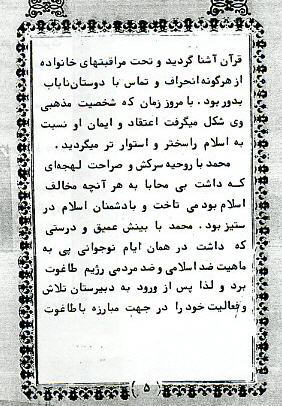 قرآن آشنا گردید و تحت مراقبتهای خانواده
از هرگونه انحراف و تماس با دوستان ناباب
بدور بود . با مرور زمان که شخصیت مذهبی
وی شکل میگرفت اعتقاد و ایمان او نسبت
به اسلام راسختر و استوار تر میگردید .
محمد با روحیه سرکش و صراحت لهجه‌ای
که داشت بی محابا به هر آنچه مخالف
اسلام بود می تاخت و بادشمنان اسلام در
ستیز بود . محمد با بینش عمیق و درستی
که داشت در همان ایام نوجوانی پی به
ماهیت ضد اسلامی و ضد مردمی رژیم طاغوت
برد و لذا پس از ورود به دبیرستان تلاش
و فعالیت خود را در جهت مبارزه با طاغوت
۵